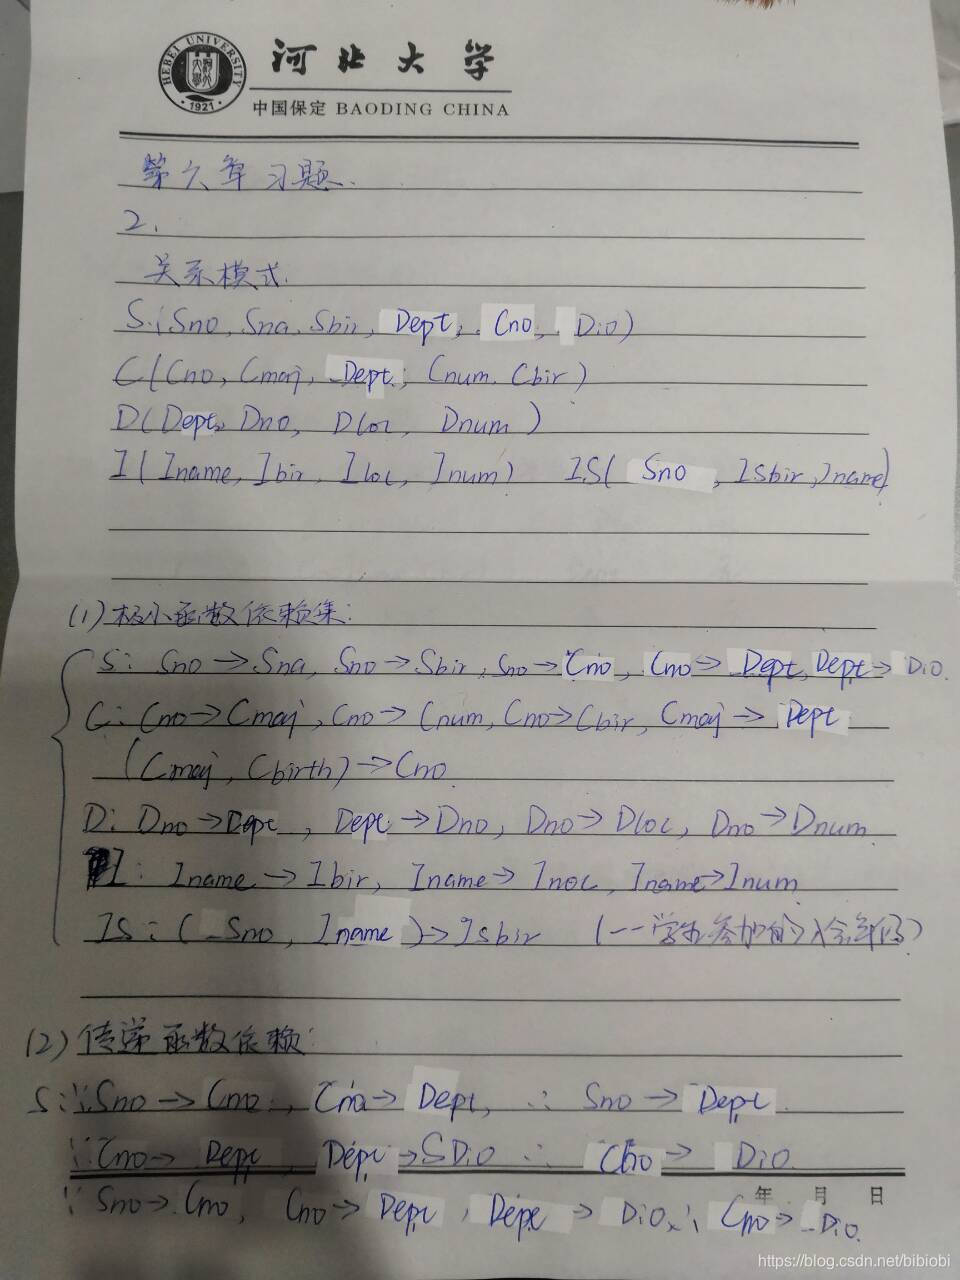 HEBEI UNIVERSITY 1921
河北大学
中国保定 BAODING CHINA
第六章习题.
2.
关系模式.
S:(Sno, Sna, Sbir, Dept, Cno, Dio)
C(Cno, Cmaj, Dept, Cnum, Cbir)
D(Dept, Dno, Dloc, Dnum)
I(Iname, Ibir, Iloc, Inum) IS(Sno, ISbir, Iname)
(1)极小函数依赖集:
S: Sno→Sna, Sno→Sbir, Sno→Cno, Cno→Dept, Dept→Dio.
C: Cno→Cmaj, Cno→Cnum, Cno→Cbir, Cmaj→Dept
(Cmaj, Cbirth)→Cno
D: Dno→Dept, Dept→Dno, Dno→Dloc, Dno→Dnum
I: Iname→Ibir, Iname→Inoc, Iname→Inum
IS:(Sno, Iname)→Isbir (一学生参加的入会年份)
(2)传递函数依赖:
S:∵Sno→Cno, Cna→Dept, ∴ Sno→Dept
∵Cno→Dept, Dept→SDio ∴ Cno→Dio
年 月 日
∵Sno→Cno, Cno→Dept, Dept→Dio, ∴Cno→Dio.
https://blog.csdn.net/bibiobi